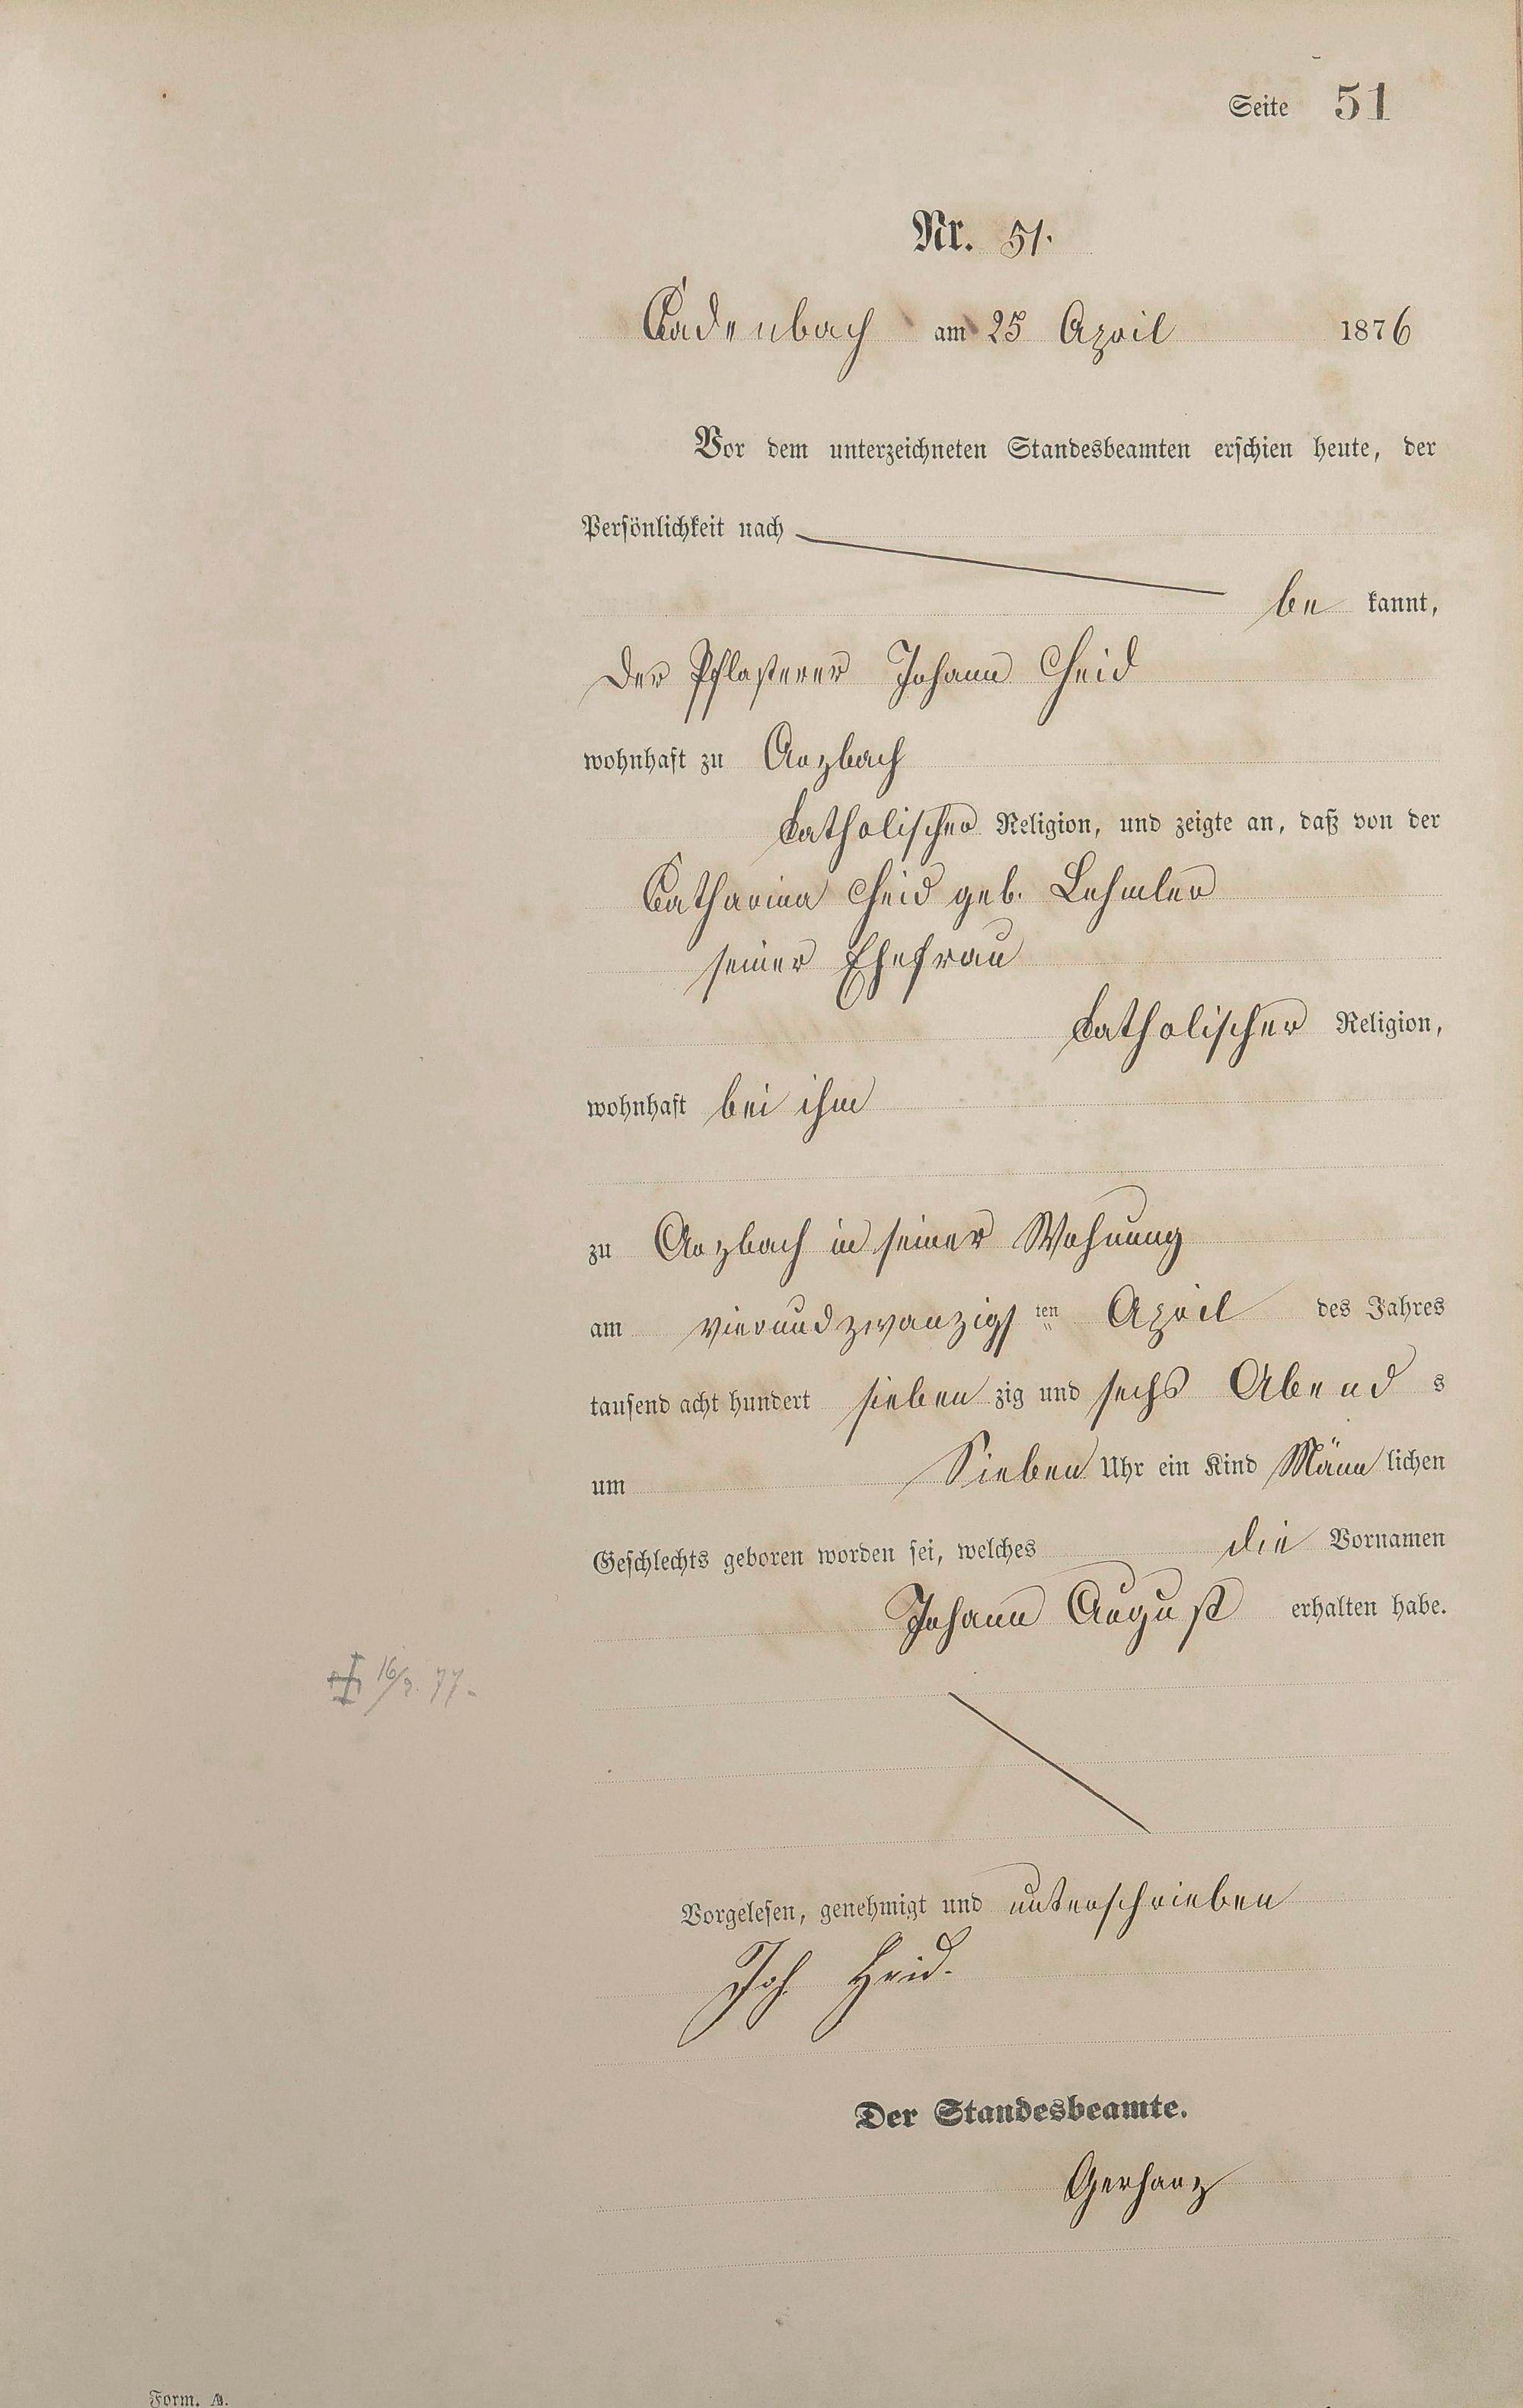 Seite 51
Nr. 51.
Cadenbach am 25 April 1876
Vor dem unterzeichneten Standesbeamten erschien heute, der
Persönlichkeit nach
be kannt,
der Pflasterer Johann Heid
wohnhaft zu Arzbach
katholischer Religion, und zeigte an, daß von der
Catharina Heid geb. Lehmler
seiner Ehefrau
katholischer Religion,
wohnhaft bei ihm
zu Arzbach in seiner Wohnung
am vierundzwanzigs ten April des Jahres
tausend acht hundert sieben zig und sechs Abend s
um Sieben Uhr ein Kind Männ lichen
Geschlechts geboren worden sei, welches die Vornamen
Johann August erhalten habe.
16/3. 77.
Vorgelesen, genehmigt und unterschrieben
Joh Heid.
Der Standesbeamte.
Gerharz
Form. A.